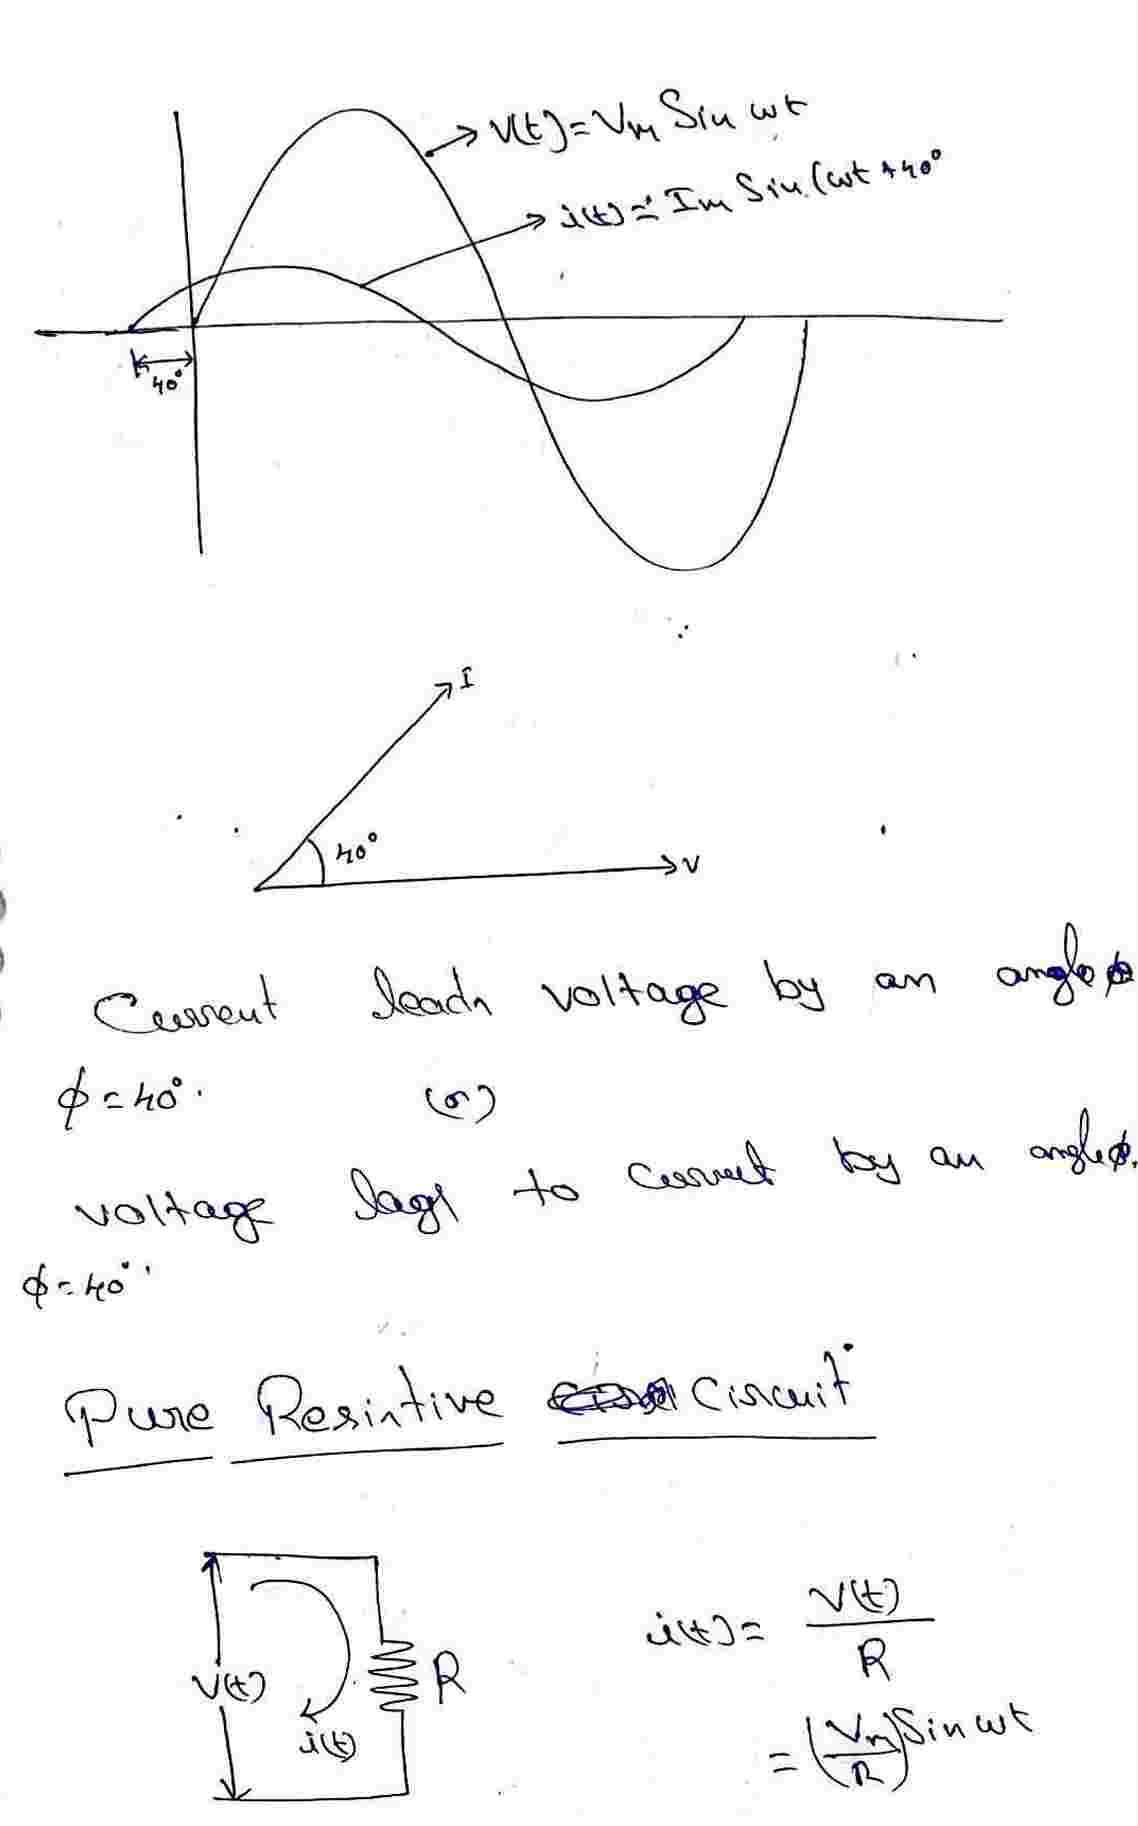 V(t) = Vm Sin wt
i(t) = Im Sin (wt + 40°
40°
I
40°
V
Current leads voltage by an angle φ
φ = 40°.
(or)
voltage lags to current by an angle φ.
φ = 40°.
Pure Resistive Circuit
V(t)
i(t)
R
i(t) = V(t) / R
= (Vm / R) Sin wt